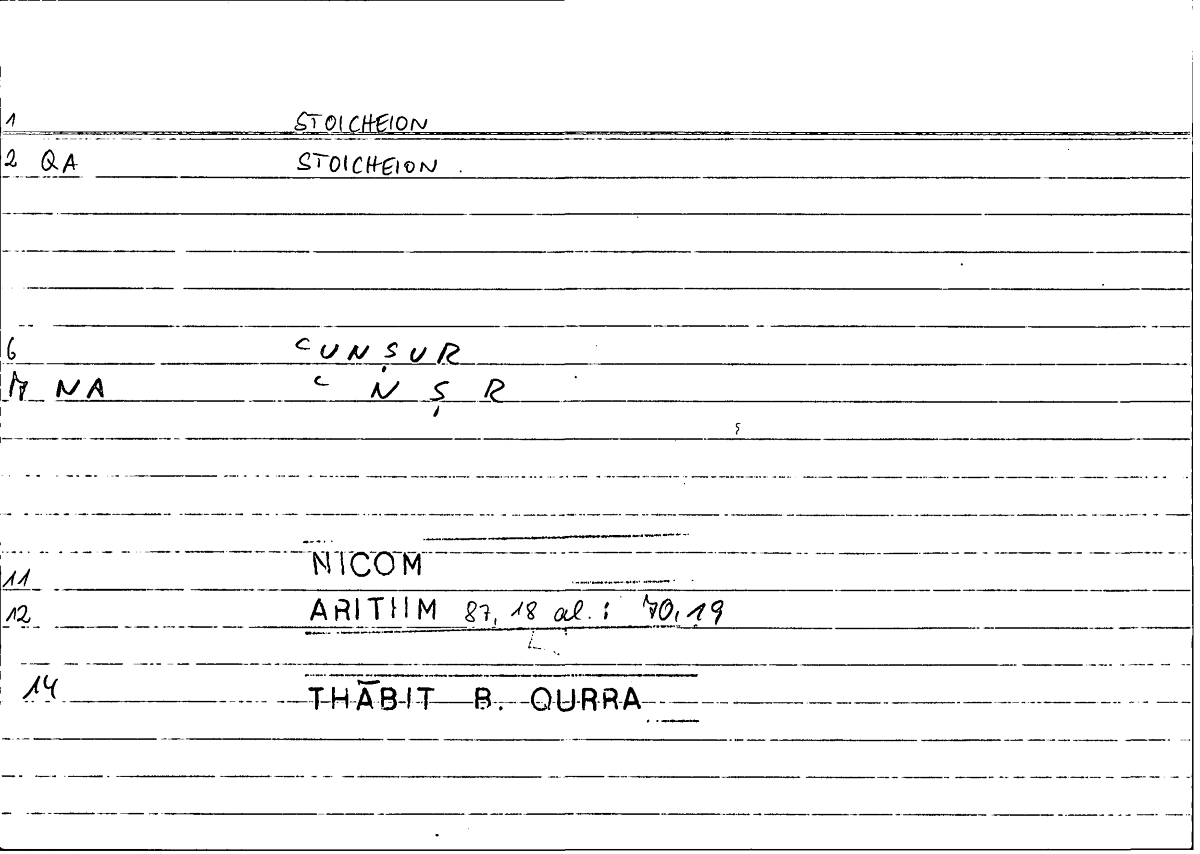 1 STOICHEION
2 QA STOICHEION
6 ʿUNṢUR
7 NA ʿ N Ṣ R
NICOM
11
12 ARITHM 87,18 al.: 70,19
14 THĀBIT B. QURRA